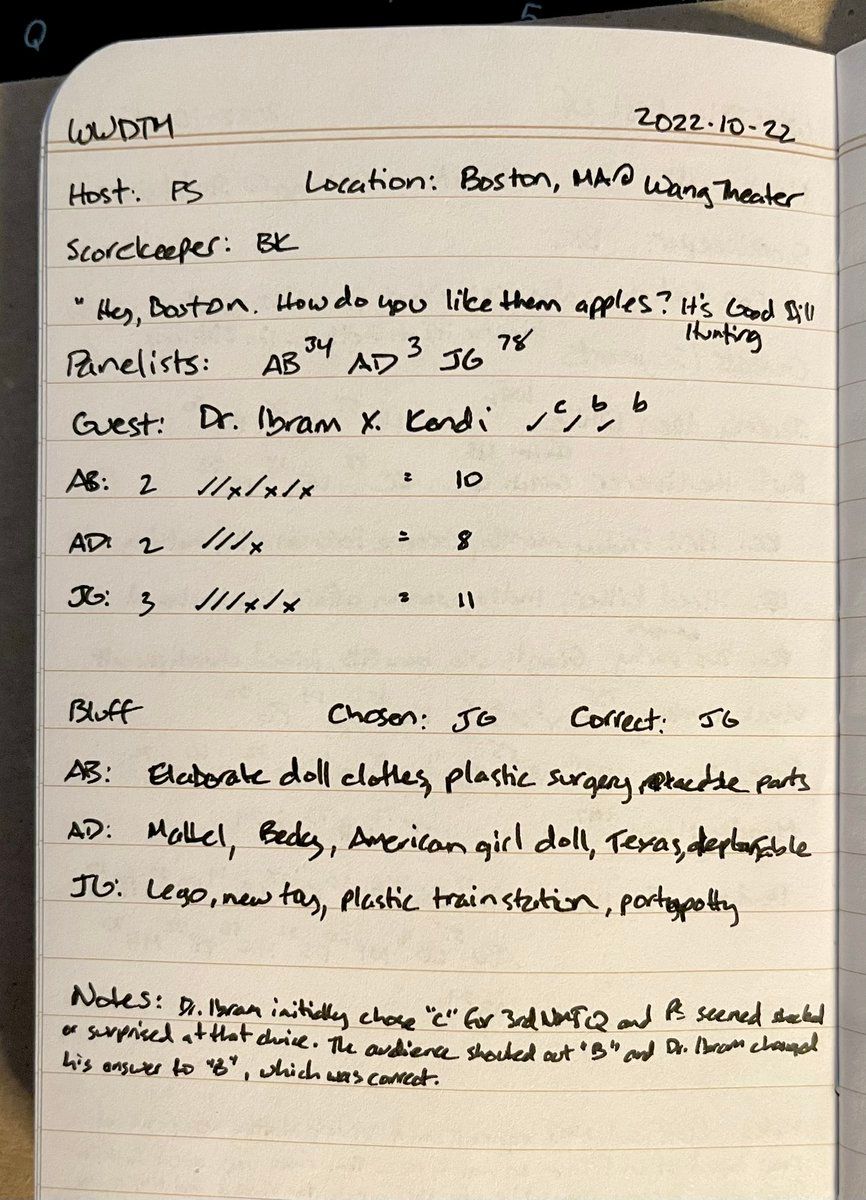 Q 5
WWDTM 2022.10-22
Host: PS Location: Boston, MA @ Wang Theater
Scorekeeper: BK
"Hey, Boston. How do you like them apples? It's Good Bill
Hunting
Panelists: AB 34 AD 3 JG 78
Guest: Dr. Ibram X. Kendi ✓ c ✓ b ✓ b
AB: 2 //x/x/x = 10
AD: 2 ///x = 8
JG: 3 ///x/x = 11
Bluff Chosen: JG Correct: JG
AB: Elaborate doll clothes, plastic surgery, parts
AD: Mattel, Becky, American girl doll, Texas,
JG: Lego, new toy, plastic train station, portypotty
Notes: Dr. Ibram initially chose "C" for 3rd NMJQ and PS seemed shocked
or surprised at that choice. The audience shouted out "B" and Dr. Ibram changed
his answer to "B", which was correct.